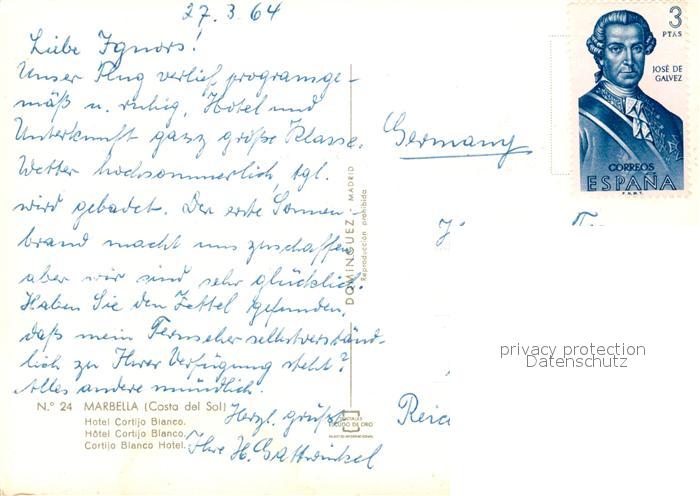 27.3.64
Liebe Ignors!
Unser Flug verlief programge-
mäß u. ruhig, Hotel und
Unterkunft ganz große Klasse.
Wetter hochsommerlich, tgl.
wird gebadet. Der erste Sonnen-
brand macht uns zuschaffen,
aber wir sind sehr glücklich.
Haben Sie den Zettel gefunden,
daß mein Fernseher selbstverständ-
lich zu Ihrer Verfügung steht?
Alles andere mündlich.
Herzl. grüßt
Ihre H.
N.° 24 MARBELLA (Costa del Sol)
Hotel Cortijo Blanco.
Hôtel Cortijo Blanco.
Cortijo Blanco Hotel.
DOMINGUEZ - MADRID
Reproducción prohibida
POSTALES
ESCUDO DE ORO
3
PTAS
JOSÉ DE
GALVEZ
CORREOS
ESPAÑA
Germany
privacy protection
Datenschutz